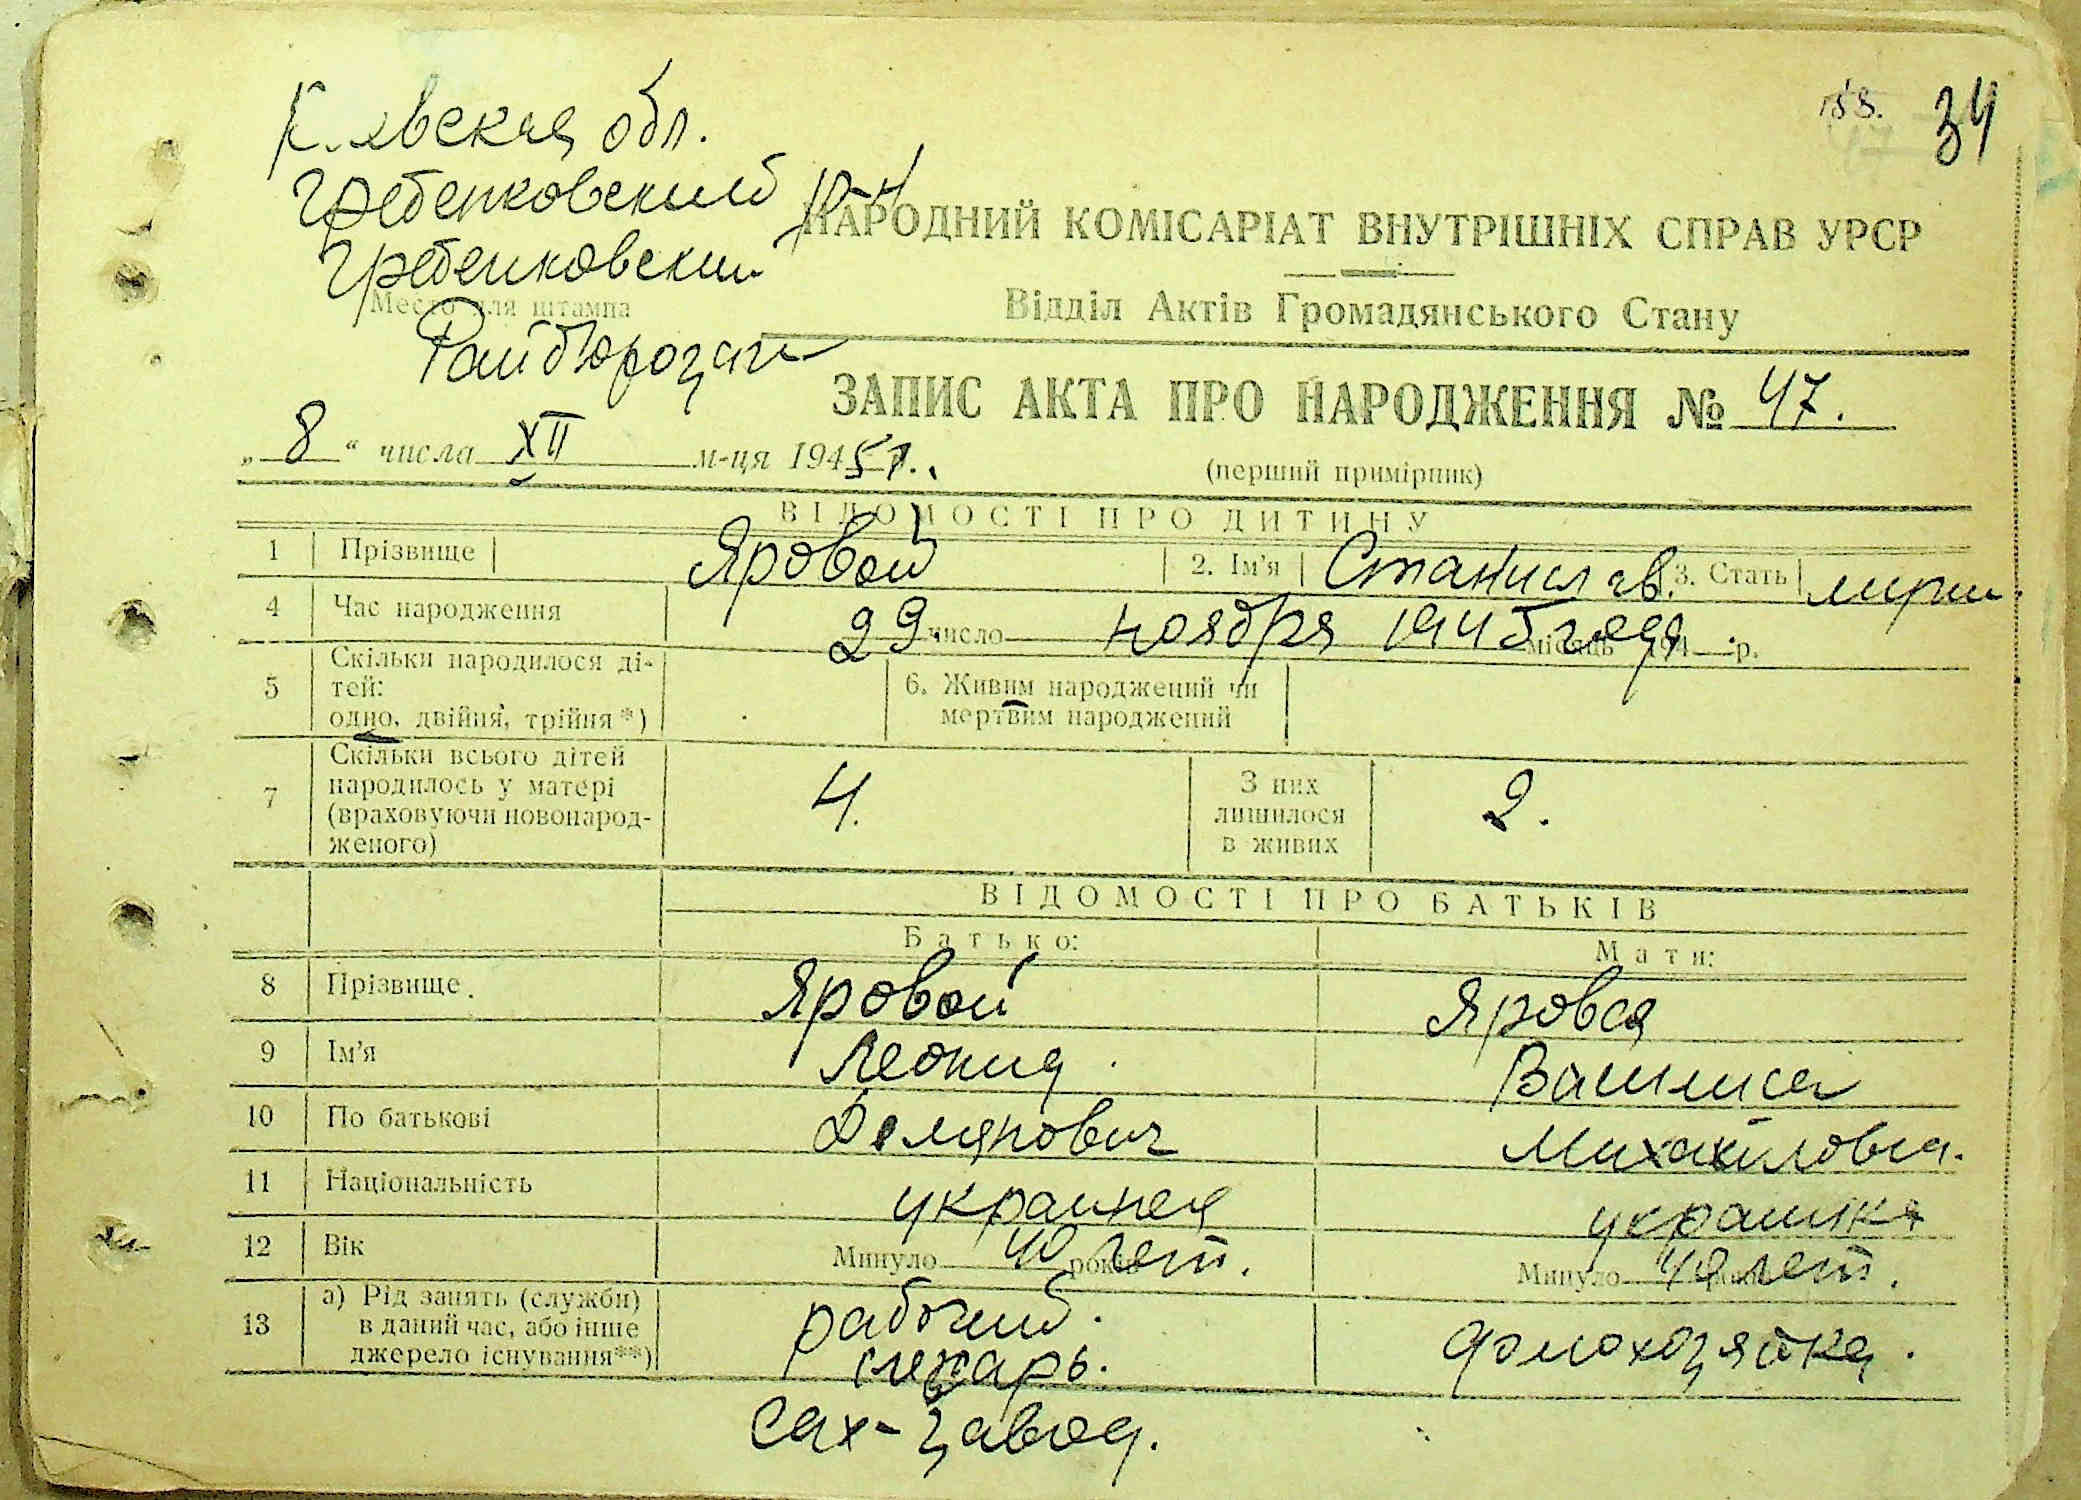 Киевская обл.
188. 34
Гребенковский р-н
НАРОДНИЙ КОМІСАРІАТ ВНУТРІШНІХ СПРАВ УРСР
Гребенковский
Место для штампа
Відділ Актів Громадянського Стану
Райбюрозагс
ЗАПИС АКТА ПРО НАРОДЖЕННЯ № 47.
„ 8 “ числа XII м-ця 1945 г.
(перший примірник)
ВІДОМОСТІ ПРО ДИТИНУ
1 Прізвище Яровой 2. Ім'я Станислав. 3. Стать
4 Час народження 29 число ноября 1945 года місяць 194 р.
5 Скільки народилося ді-
тей:
одно, двійня, трійня *)
6. Живим народжений чи
мертвим народжений
7 Скільки всього дітей
народилось у матері
(враховуючи новонарод-
женого)
4.
З них
лишилося
в живих
2.
ВІДОМОСТІ ПРО БАТЬКІВ
Батько: Мати:
8 Прізвище Яровой Яровая
9 Ім'я Леонид Василиса
10 По батькові Демянович Михайловна.
11 Національність украинец украинка
12 Вік Минуло 40 років лет. Минуло 40 лет.
13 а) Рід занять (служби)
в даний час, або інше
джерело існування**)
рабочий.
слесарь.
Сах-завод.
домохозяйка.